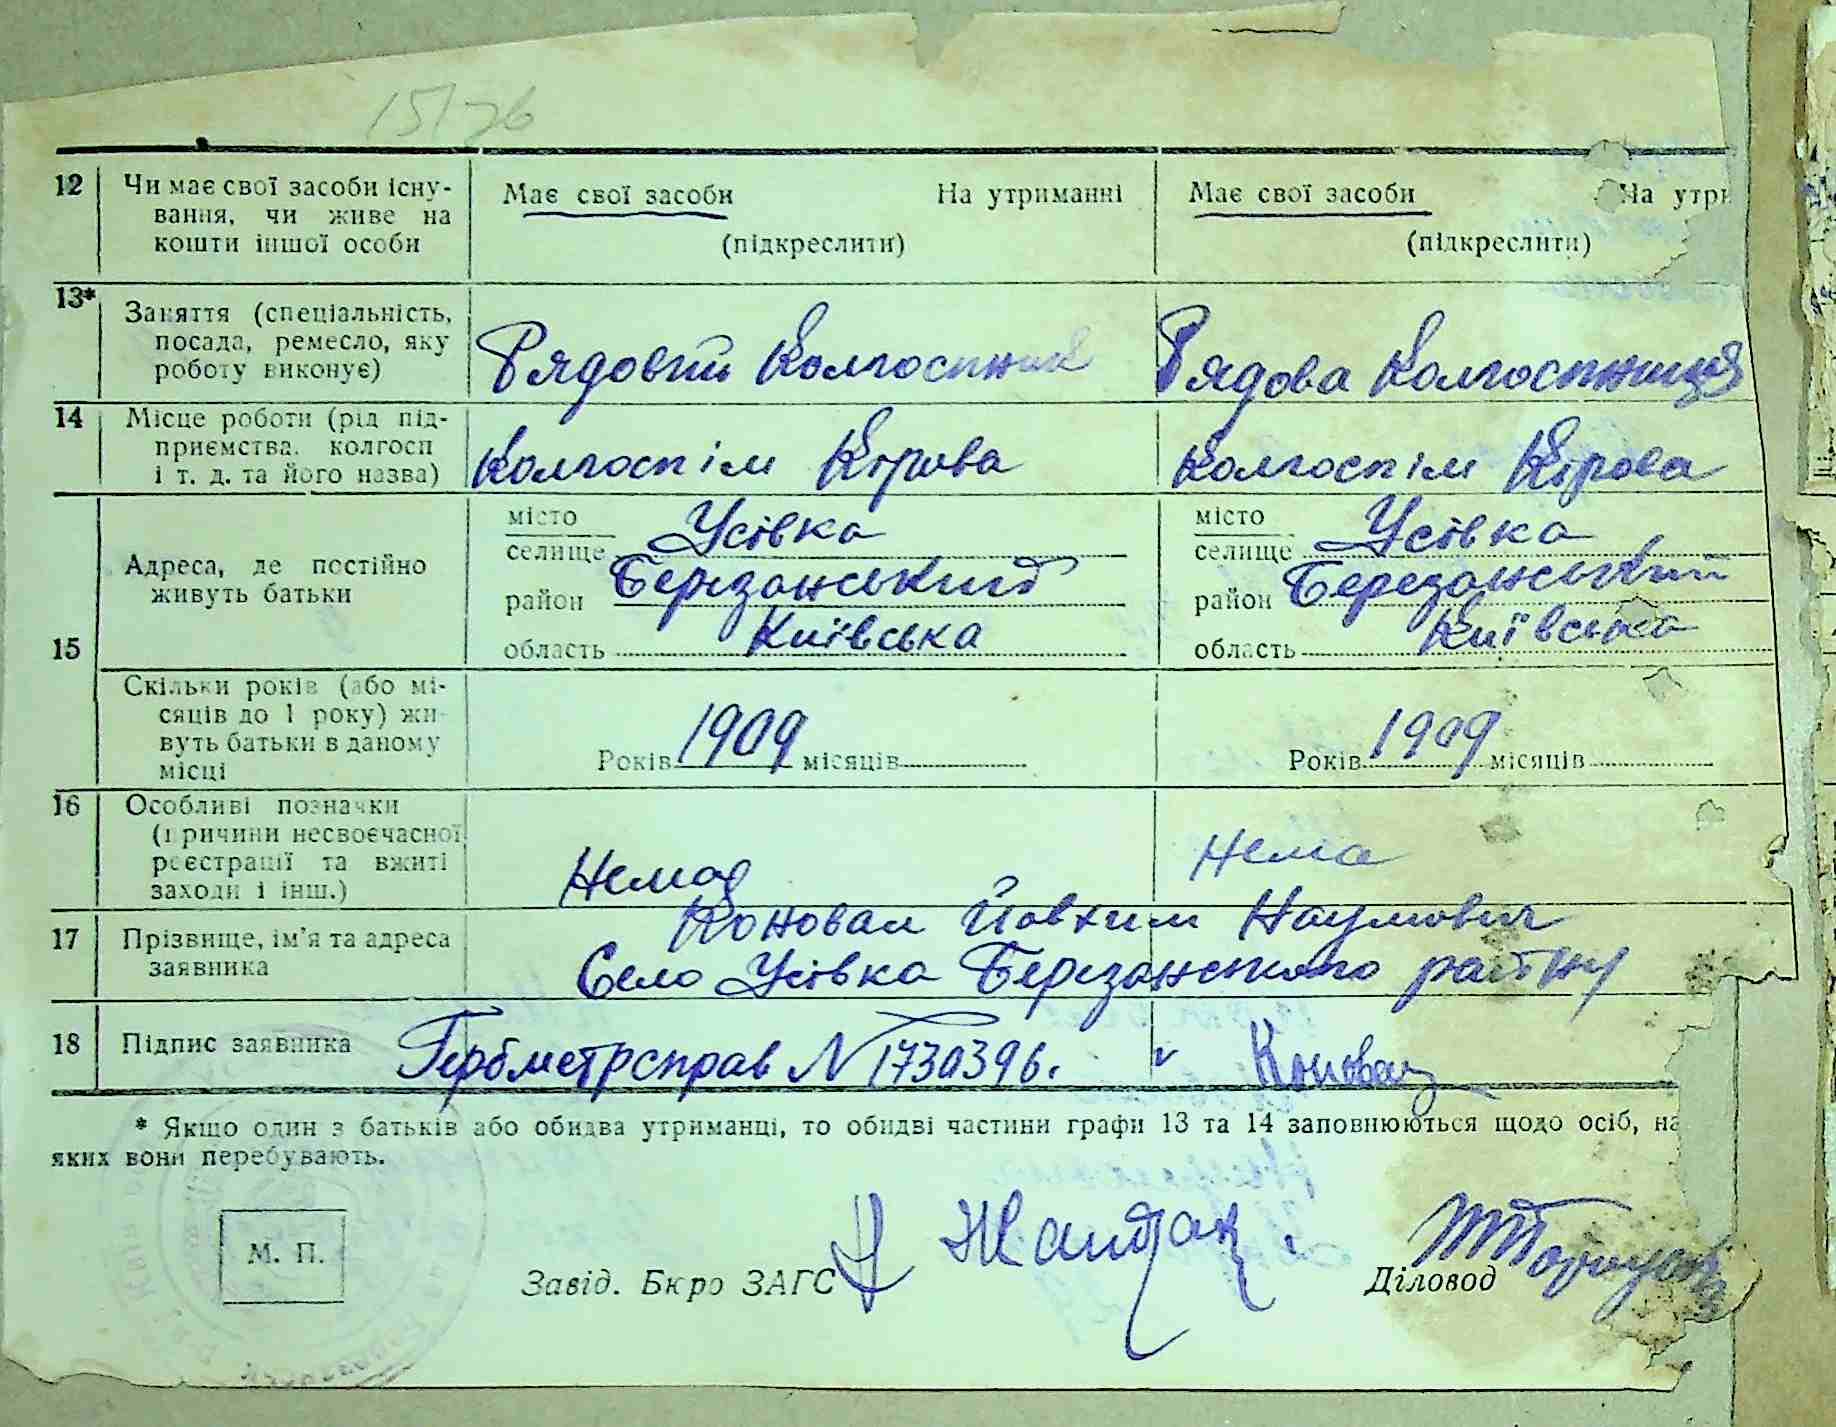 15/26
12 Чи має свої засоби існу-
вання, чи живе на
кошти іншої особи
Має свої засоби На утриманні
(підкреслити)
Має свої засоби На утри
(підкреслити)
13* Заняття (спеціальність,
посада, ремесло, яку
роботу виконує)
Рядовий Колгоспник
Рядова Колгоспниця
14 Місце роботи (рід під-
приємства, колгосп
і т. д. та його назва)
Колгосп ім Кірова
Колгосп ім Кірова
15 Адреса, де постійно
живуть батьки
місто
селище Усівка
район Березанський
область Київська
місто
селище Усівка
район Березанський
область Київська
Скільки років (або мі-
сяців до 1 року) жи-
вуть батьки в даному
місці
Років 1909 місяців
Років 1909 місяців
16 Особливі позначки
(причини несвоєчасної
реєстрації та вжиті
заходи і інш.)
Нема
Нема
17 Прізвище, ім'я та адреса
заявника
Коновал Йовхим Наумович
Село Усівка Березанського району
18 Підпис заявника
Гербметрсправ N 1730396. v Коновал
* Якщо один з батьків або обидва утриманці, то обидві частини графи 13 та 14 заповнюються щодо осіб, на
яких вони перебувають.
М. П.
Завід. Бюро ЗАГС
Діловод